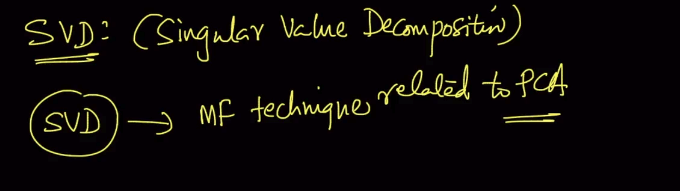 SVD: (Singular Value Decomposition)
SVD → MF technique, related to PCA